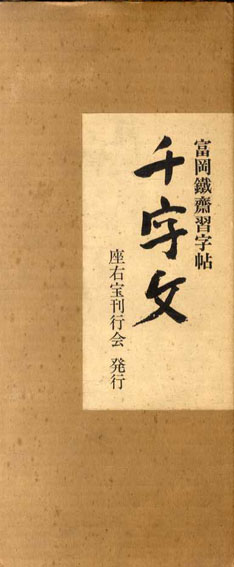 富岡鐵齋習字帖
千字文
座右宝刊行会 発行